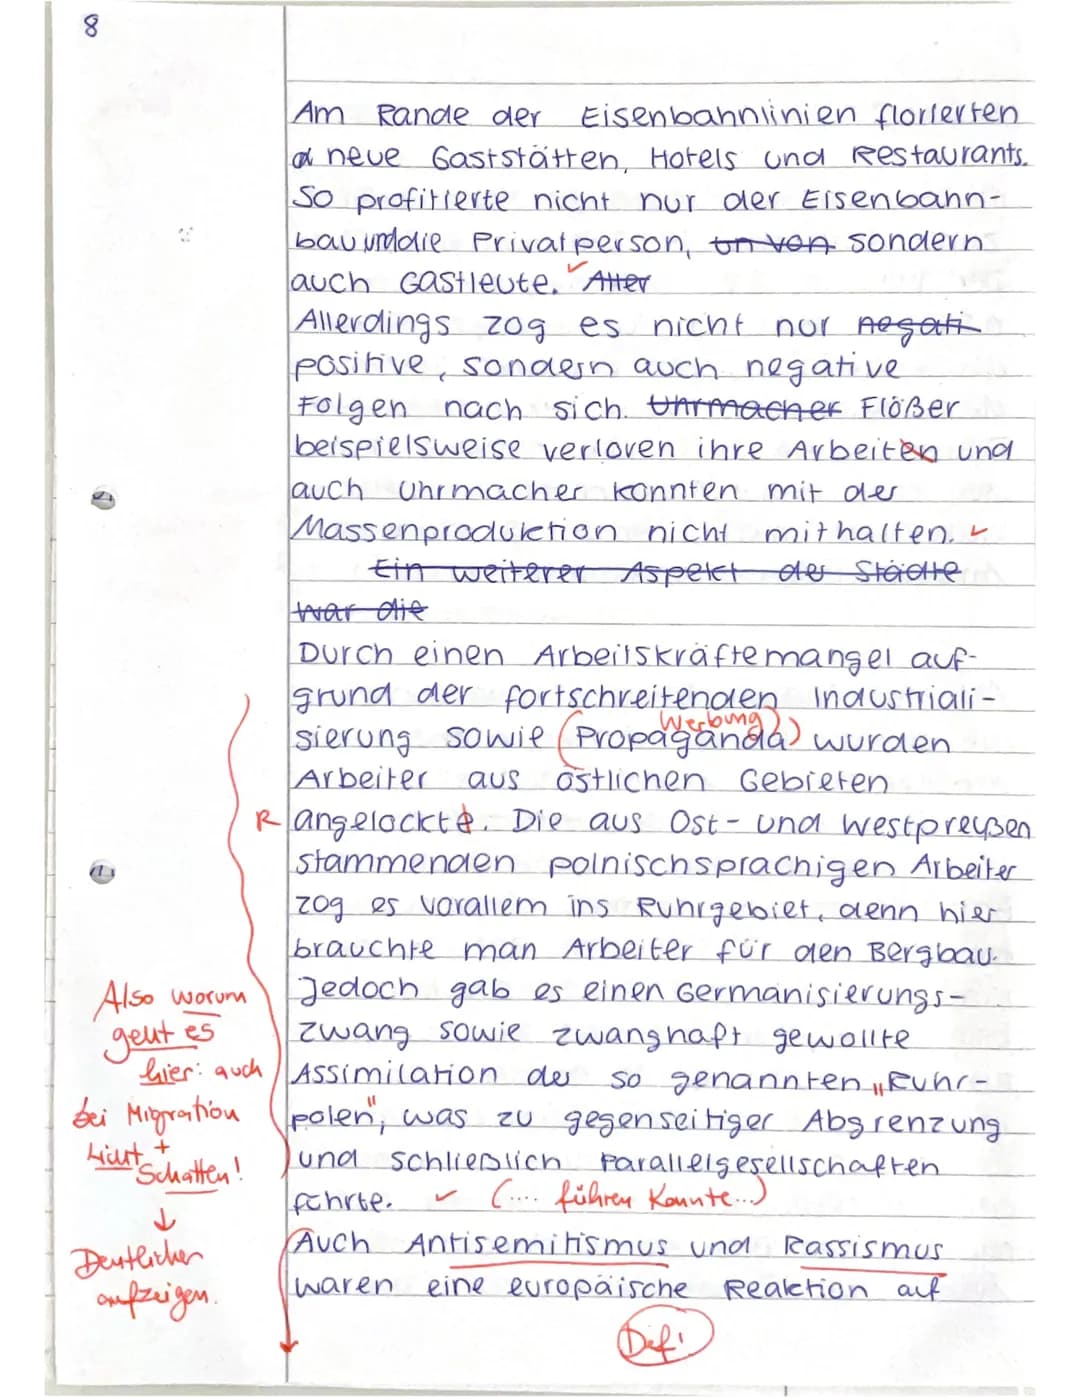 8
Am Rande der Eisenbahnlinien florierten
neue Gaststätten, Hotels und Restaurants.
So profitierte nicht nur der Eisenbahn-
bau und die Privatperson, ~~un von~~ sondern
auch Gastleute. ✓ ~~Aller~~
Allerdings zog es nicht nur ~~negati~~
positive, sondern auch negative
Folgen nach sich. ~~Uhrmacher~~ Flößer
beispielsweise verloren ihre Arbeiten und
auch Uhrmacher konnten mit der
Massenproduktion nicht mithalten. ✓
~~Ein weiterer Aspekt der Städte~~
~~war die~~
Durch einen Arbeitskräftemangel auf-
grund der fortschreitenden Industriali-
(Werbung)
sierung sowie (Propaganda) wurden
Arbeiter aus östlichen Gebieten
R angelockte. Die aus Ost- und Westpreußen
stammenden polnischsprachigen Arbeiter
zog es vorallem ins Ruhrgebiet, denn hier
brauchte man Arbeiter für den Bergbau.
Jedoch gab es einen Germanisierungs-
zwang sowie zwanghaft gewollte
Assimilation der so genannten „Ruhr-
polen", was zu gegenseitiger Abgrenzung
und schließlich Parallelgesellschaften
führte. ✓ (.... führen konnte...)
Auch Antisemitismus und Rassismus
waren eine europäische Reaktion auf
Def!
Also worum
geht es
hier: auch
bei Migration
Licht +
Schatten!
↓
Deutlicher
aufzeigen.